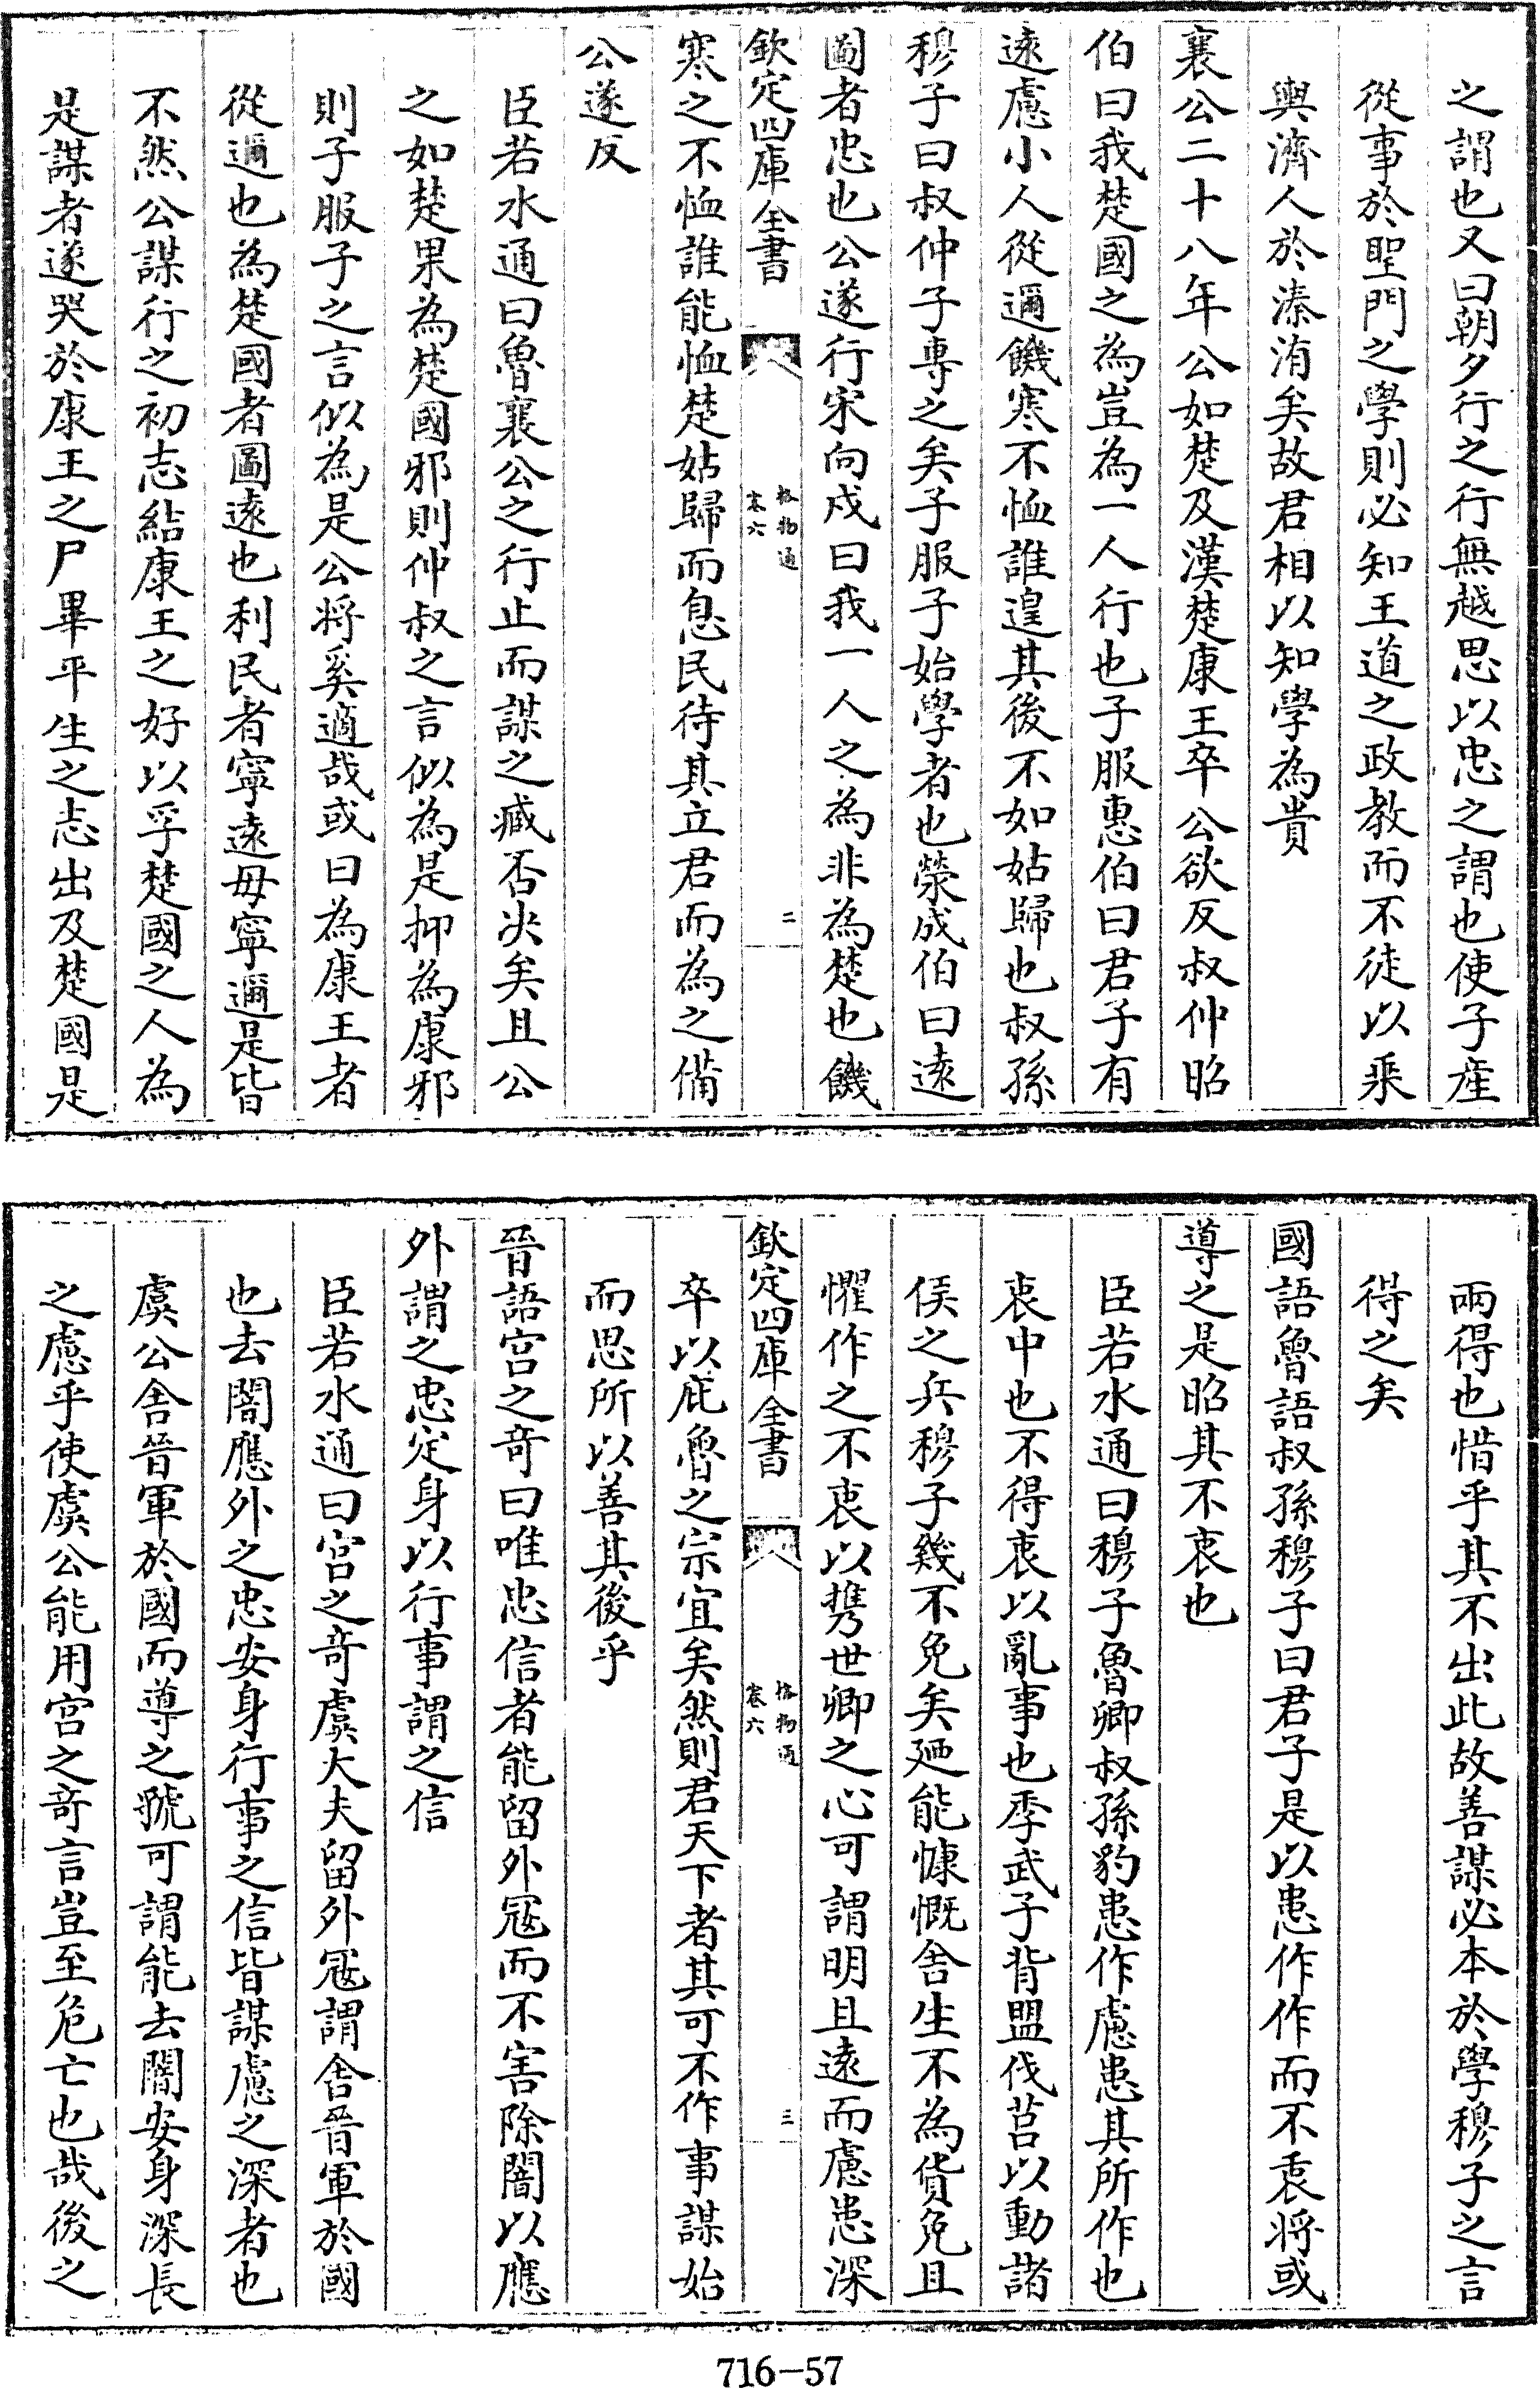 之謂也又曰朝夕行之行無越思以忠之謂也使子産
從事於聖門之學則必知王道之政教而不徒以乘
輿濟人於溱洧矣故君相以知學為貴
襄公二十八年公如楚及漢楚康王卒公欲反叔仲昭
伯曰我楚國之為豈為一人行也子服惠伯曰君子有
遠慮小人從邇饑寒不恤誰遑其後不如姑歸也叔孫
穆子曰叔仲子專之矣子服子始學者也榮成伯曰遠
圖者忠也公遂行宋向戍曰我一人之為非為楚也饑
欽定四庫全書
格物通
卷六
二
寒之不恤誰能恤楚姑歸而息民待其立君而為之備
公遂反
臣若水通曰魯襄公之行止而謀之臧否決矣且公
之如楚果為楚國邪則仲叔之言似為是抑為康邪
則子服子之言似為是公將奚適哉或曰為康王者
從邇也為楚國者圖遠也利民者寧遠毋寧邇是皆
不然公謀行之初志結康王之好以孚楚國之人為
是謀者遂哭於康王之尸畢平生之志出及楚國是
兩得也惜乎其不出此故善謀必本於學穆子之言
得之矣
國語魯語叔孫穆子曰君子是以患作作而不衷將或
導之是昭其不衷也
臣若水通曰穆子魯卿叔孫豹患作慮患其所作也
衷中也不得衷以亂事也季武子背盟伐莒以動諸
侯之兵穆子幾不免矣廼能慷慨舍生不為貨免且
懼作之不衷以携世卿之心可謂明且遠而慮患深
欽定四庫全書
格物通
卷六
三
卒以庇魯之宗宜矣然則君天下者其可不作事謀始
而思所以善其後乎
晉語宮之奇曰唯忠信者能留外冦而不害除闇以應
外謂之忠定身以行事謂之信
臣若水通曰宮之奇虞大夫留外冦謂舍晉軍於國
也去闇應外之忠安身行事之信皆謀慮之深者也
虞公舍晉軍於國而導之虢可謂能去闇安身深長
之慮乎使虞公能用宮之奇言豈至危亡也哉後之
716-57